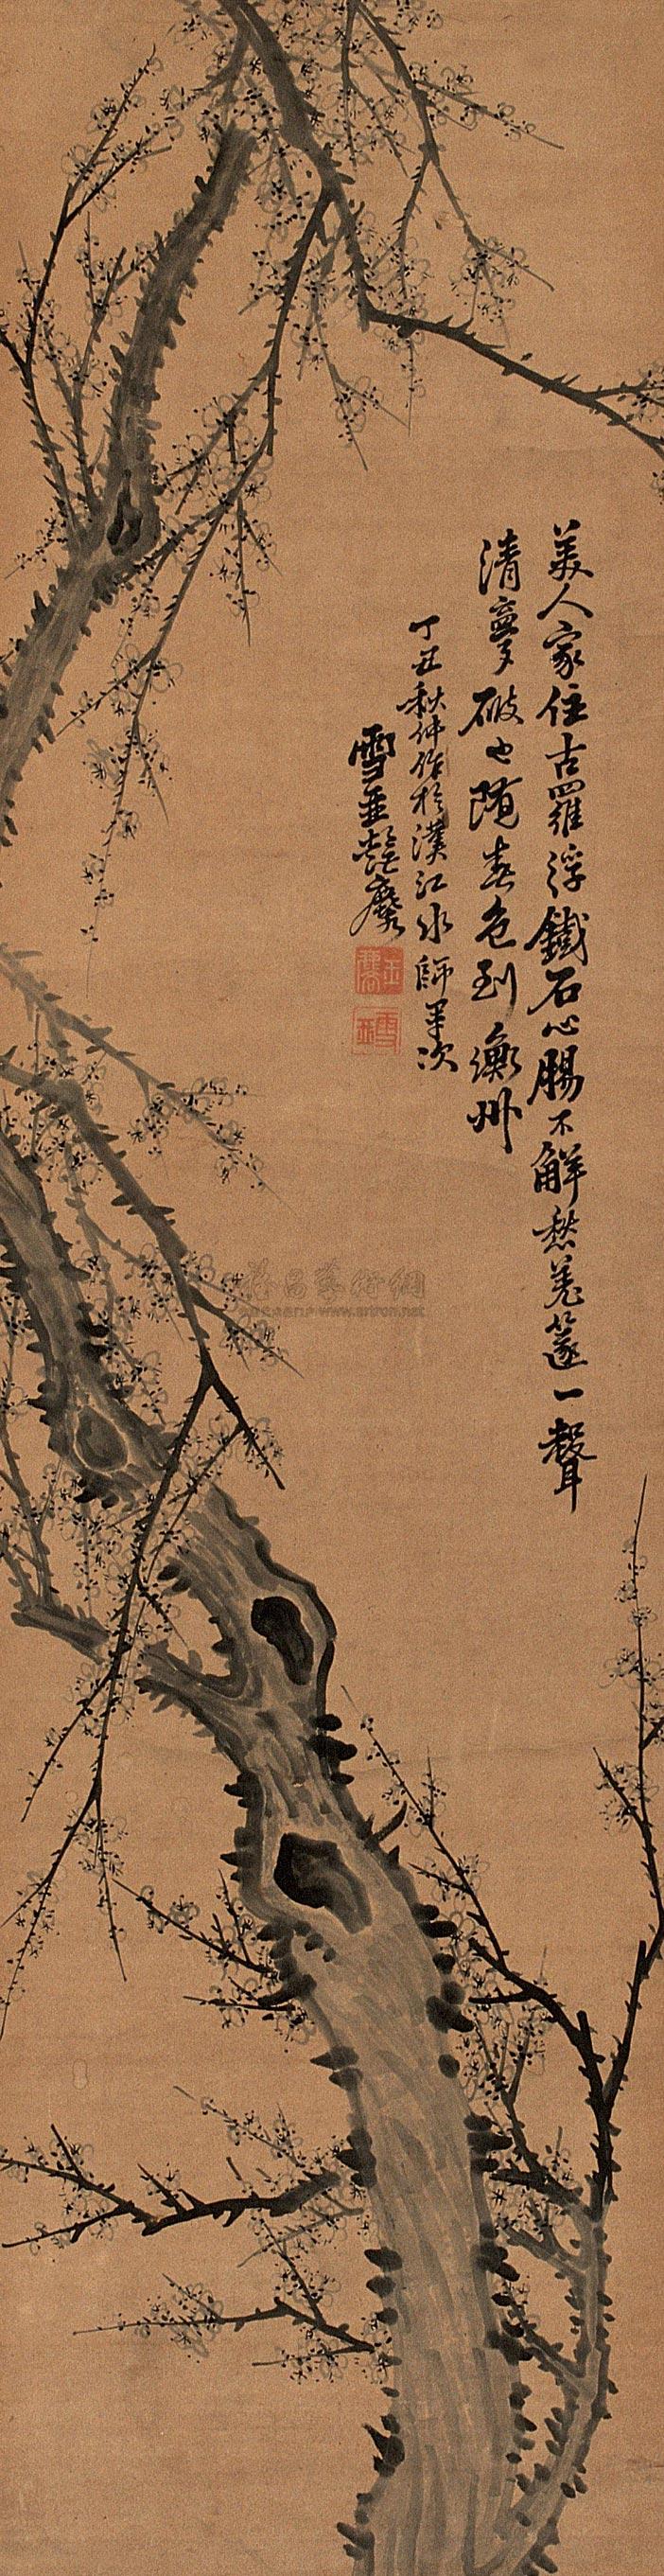 美人家住古羅浮鐵石心腸不解愁羌篴一聲
清夢破也隨春色到衡州
丁丑秋仲作於漢江水師軍次
雪
www.artron.net